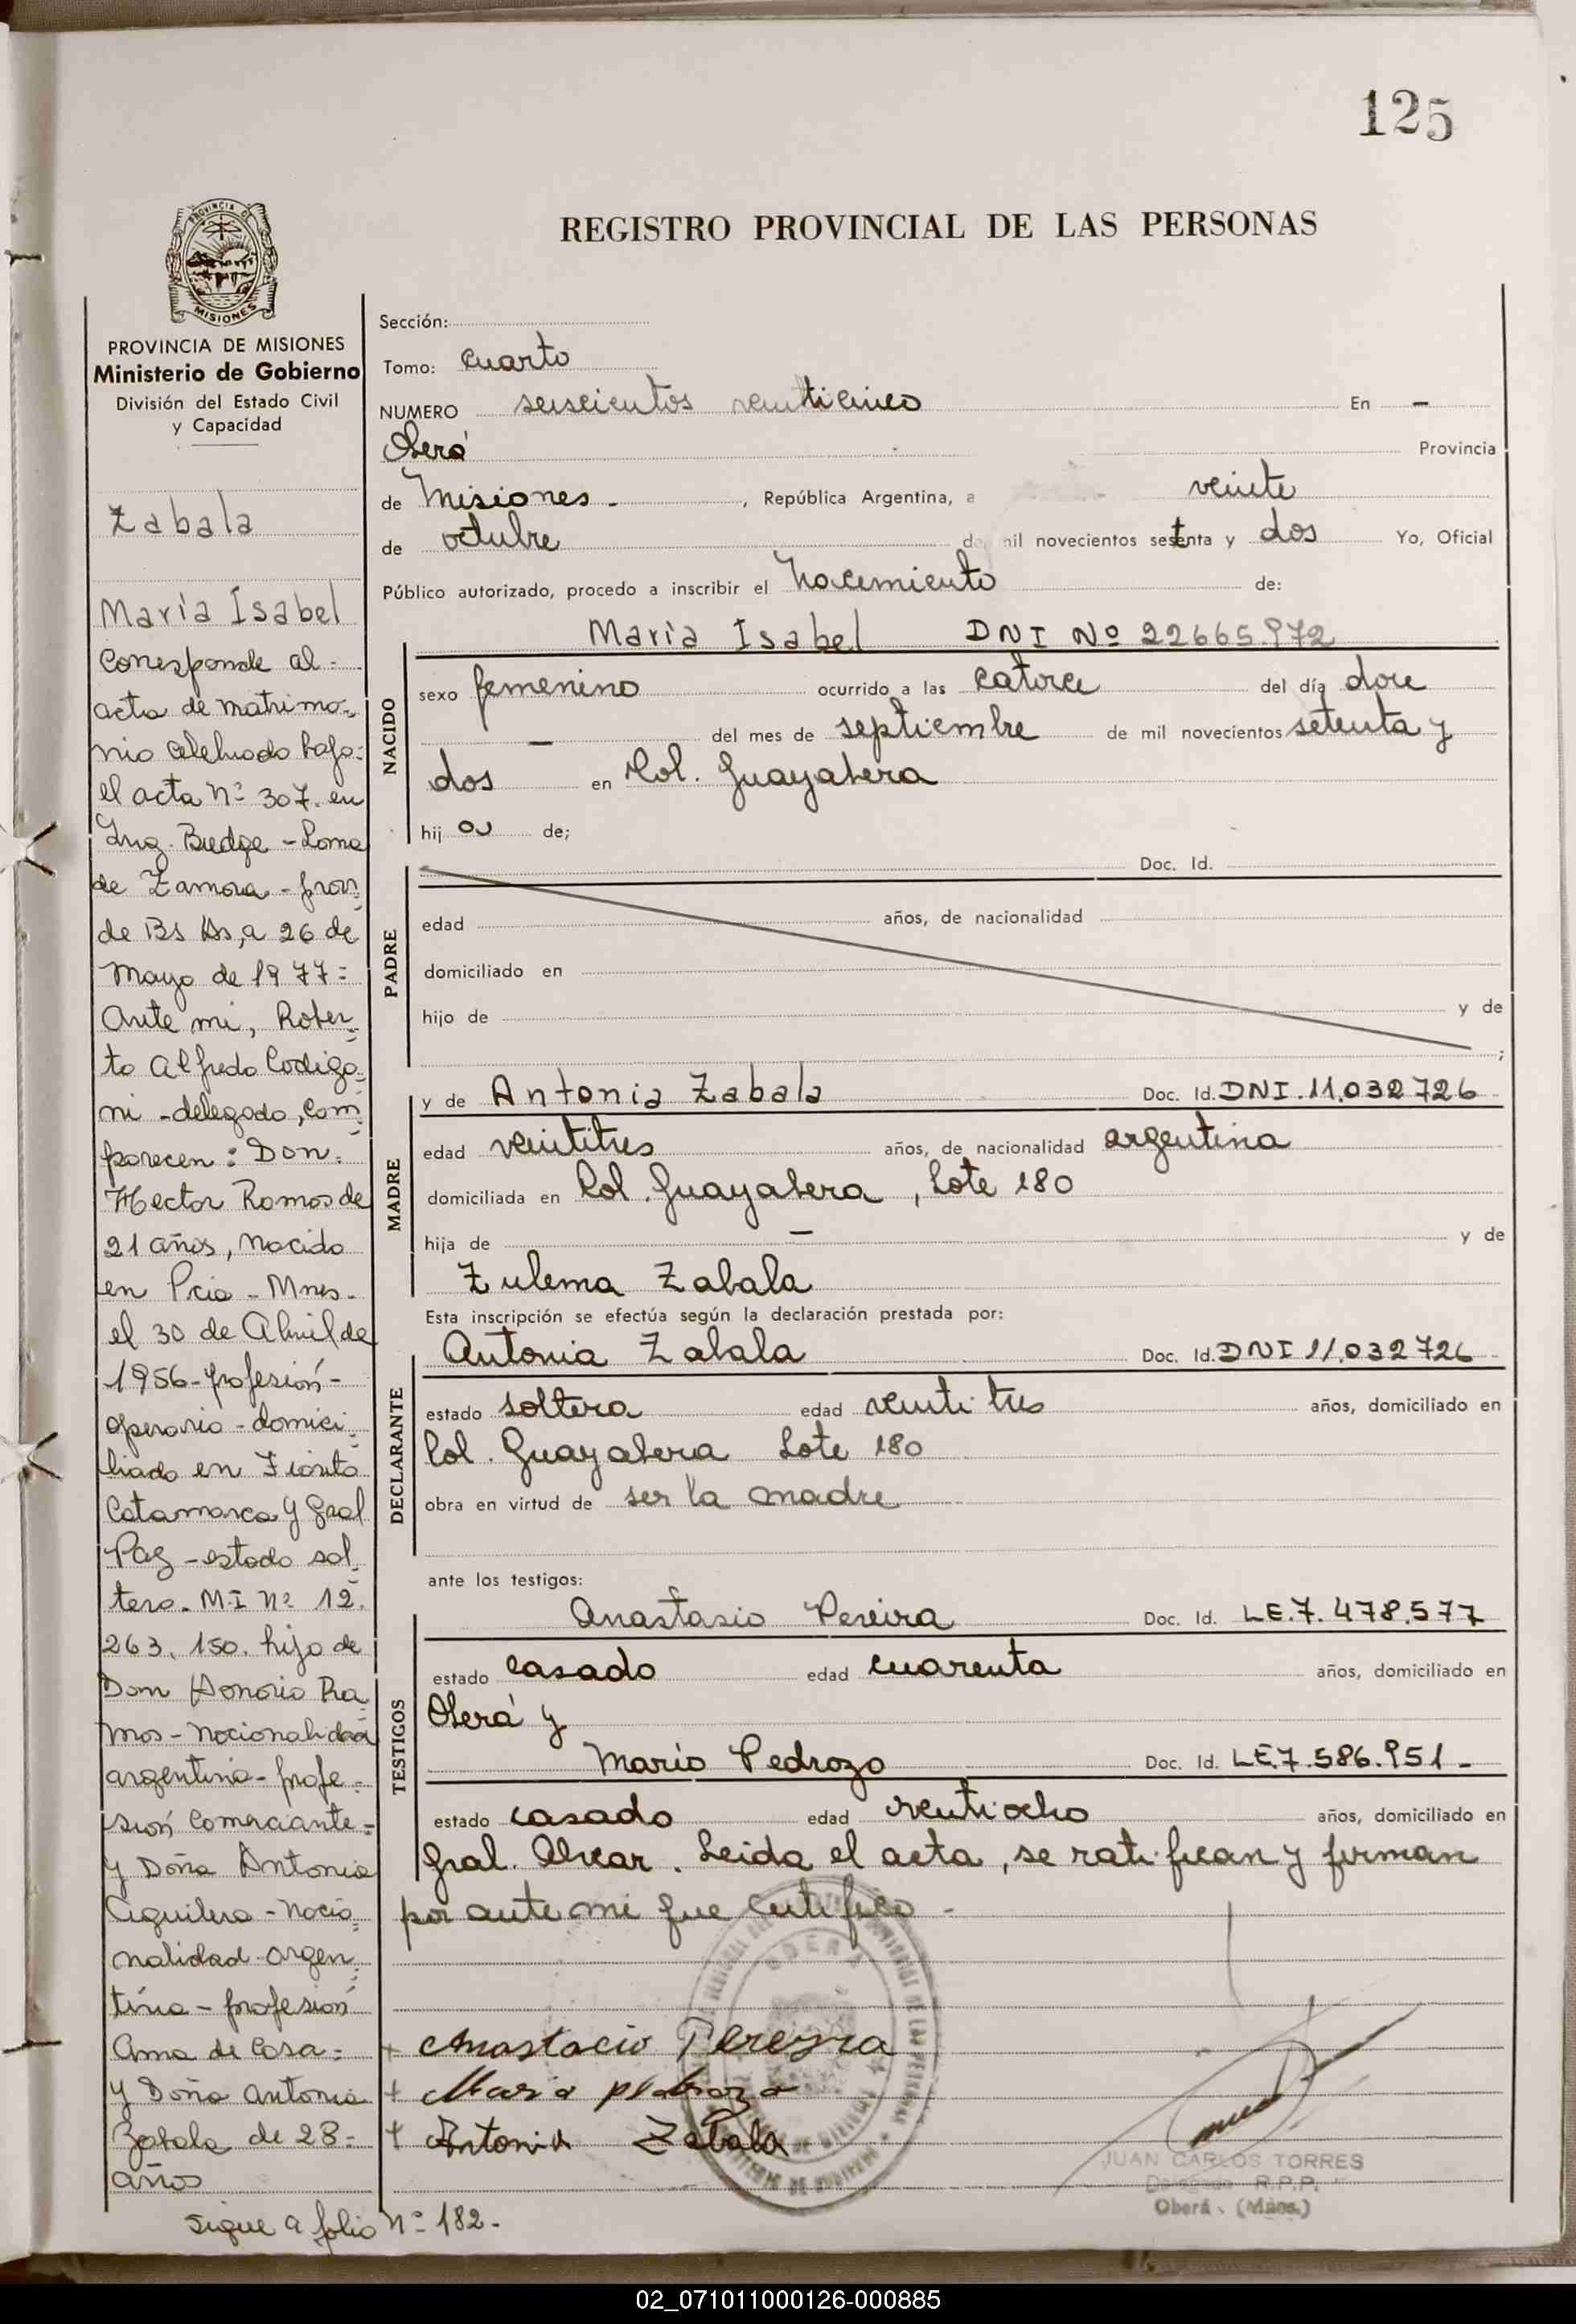 125
REGISTRO PROVINCIAL DE LAS PERSONAS
PROVINCIA DE MISIONES
Ministerio de Gobierno
División del Estado Civil
y Capacidad
Zabala
María Isabel
Corresponde al
acta de matrimo-
nio celebrado bajo
el acta Nº 307. en
Ing. Budge - Loma
de Zamora - prov.
de Bs As, a 26 de
Mayo de 1977=
Ante mi, Rober-
to Alfredo Codigo-
ni - delegado, com-
parecen: Don:
Hector Ramos de
21 años, nacido
en Pcia - Mnes-
el 30 de Abril de
1956 - profesión -
operario - domici-
liado en Fiorito
Catamarca y Gral
Paz - estado sol-
tero. M.I Nº 12.
263.150. hijo de
Don Honorio Ra-
mos - nacionalidad
argentina - profe-
sión Comerciante=
y Doña Antonia
Aguilera - nacio-
nalidad argen-
tina - profesión
Ama de Casa=
y Doña Antonia
Zabala de 28=
años
Sigue a folio Nº 182.-
Sección:
Tomo: Cuarto
NUMERO seiscientos veinticinco En -
Oberá Provincia
de Misiones - , República Argentina, a veinte
de octubre de mil novecientos setenta y dos Yo, Oficial
Público autorizado, procedo a inscribir el Nacimiento de:
María Isabel DNI Nº 22665.972
NACIDO
sexo femenino ocurrido a las catorce del día doce
- del mes de septiembre de mil novecientos setenta y
dos en Col. Guayabera
hij a de;
PADRE
Doc. Id.
edad años, de nacionalidad
domiciliado en
hijo de y de
;
MADRE
y de Antonia Zabala Doc. Id. DNI.11.032726
edad veintitres años, de nacionalidad argentina
domiciliada en Col. Guayabera, Lote 180
hija de - y de
Zulema Zabala
Esta inscripción se efectúa según la declaración prestada por:
DECLARANTE
Antonia Zabala Doc. Id. DNI 11.032726
estado soltera edad veintitres años, domiciliado en
Col. Guayabera Lote 180
obra en virtud de ser la madre
ante los testigos:
TESTIGOS
Anastasio Pereira Doc. Id. LE.7.478.577
estado casado edad cuarenta años, domiciliado en
Oberá y
Mario Pedrozo Doc. Id. LE.7.586.951-
estado casado edad veintiocho años, domiciliado en
Gral. Alvear. Leida el acta, se ratifican y firman
por ante mi que certifico -
+ Anastacio Pereyra
+ Mario pedrozo
+ Antonia Zabala
OBERA
JUAN CARLOS TORRES
Delegado R.P.P.
Oberá - (Mnes.)
02_071011000126-000885